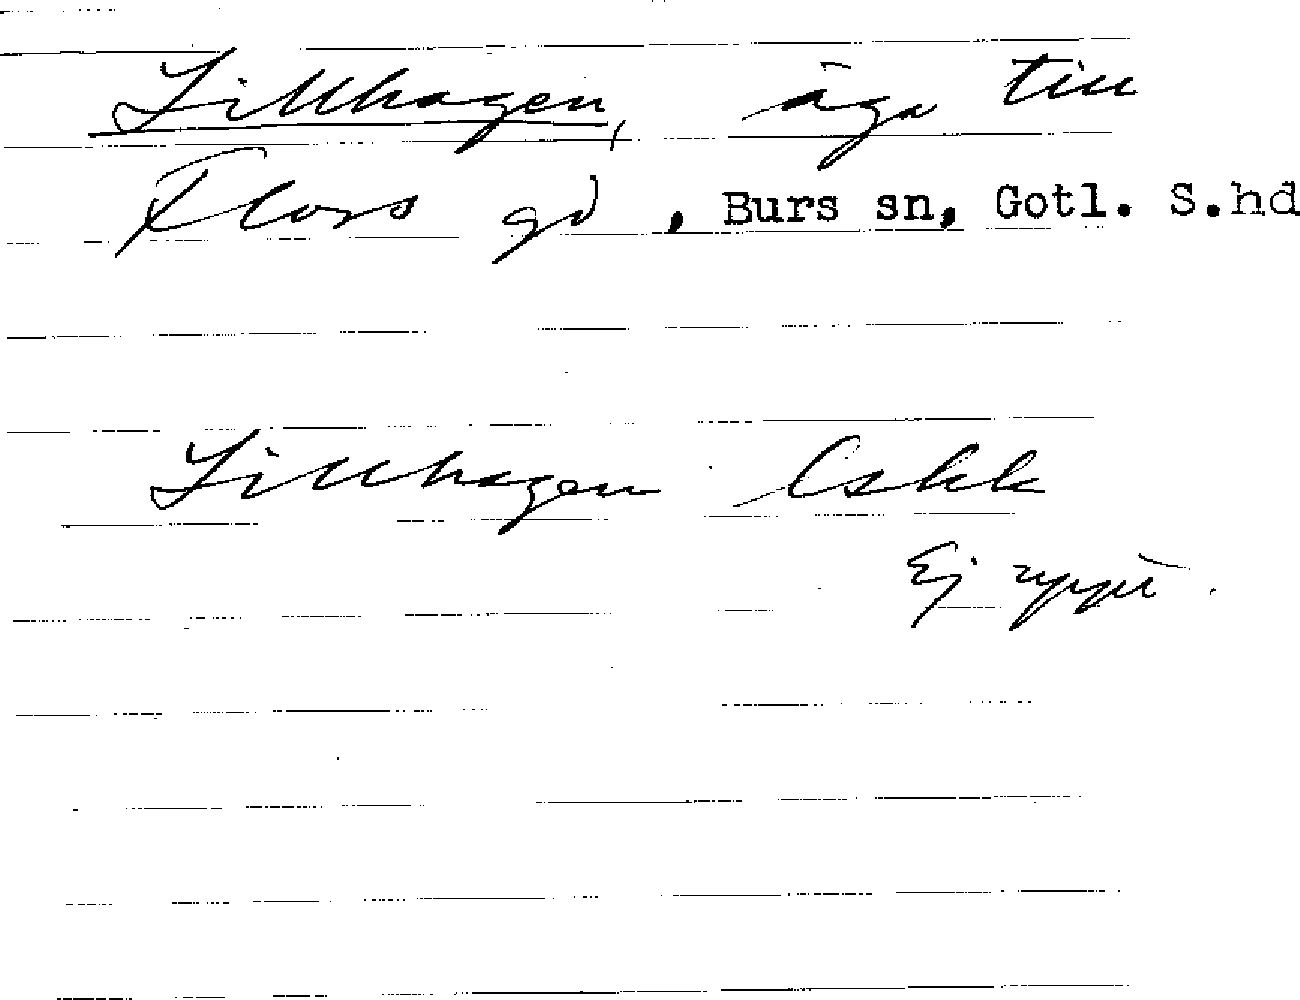 Lillhagen, äga till
Flors gd, Burs sn, Gotl. S.hd
Lillhagen Eskk
Ej uppt.